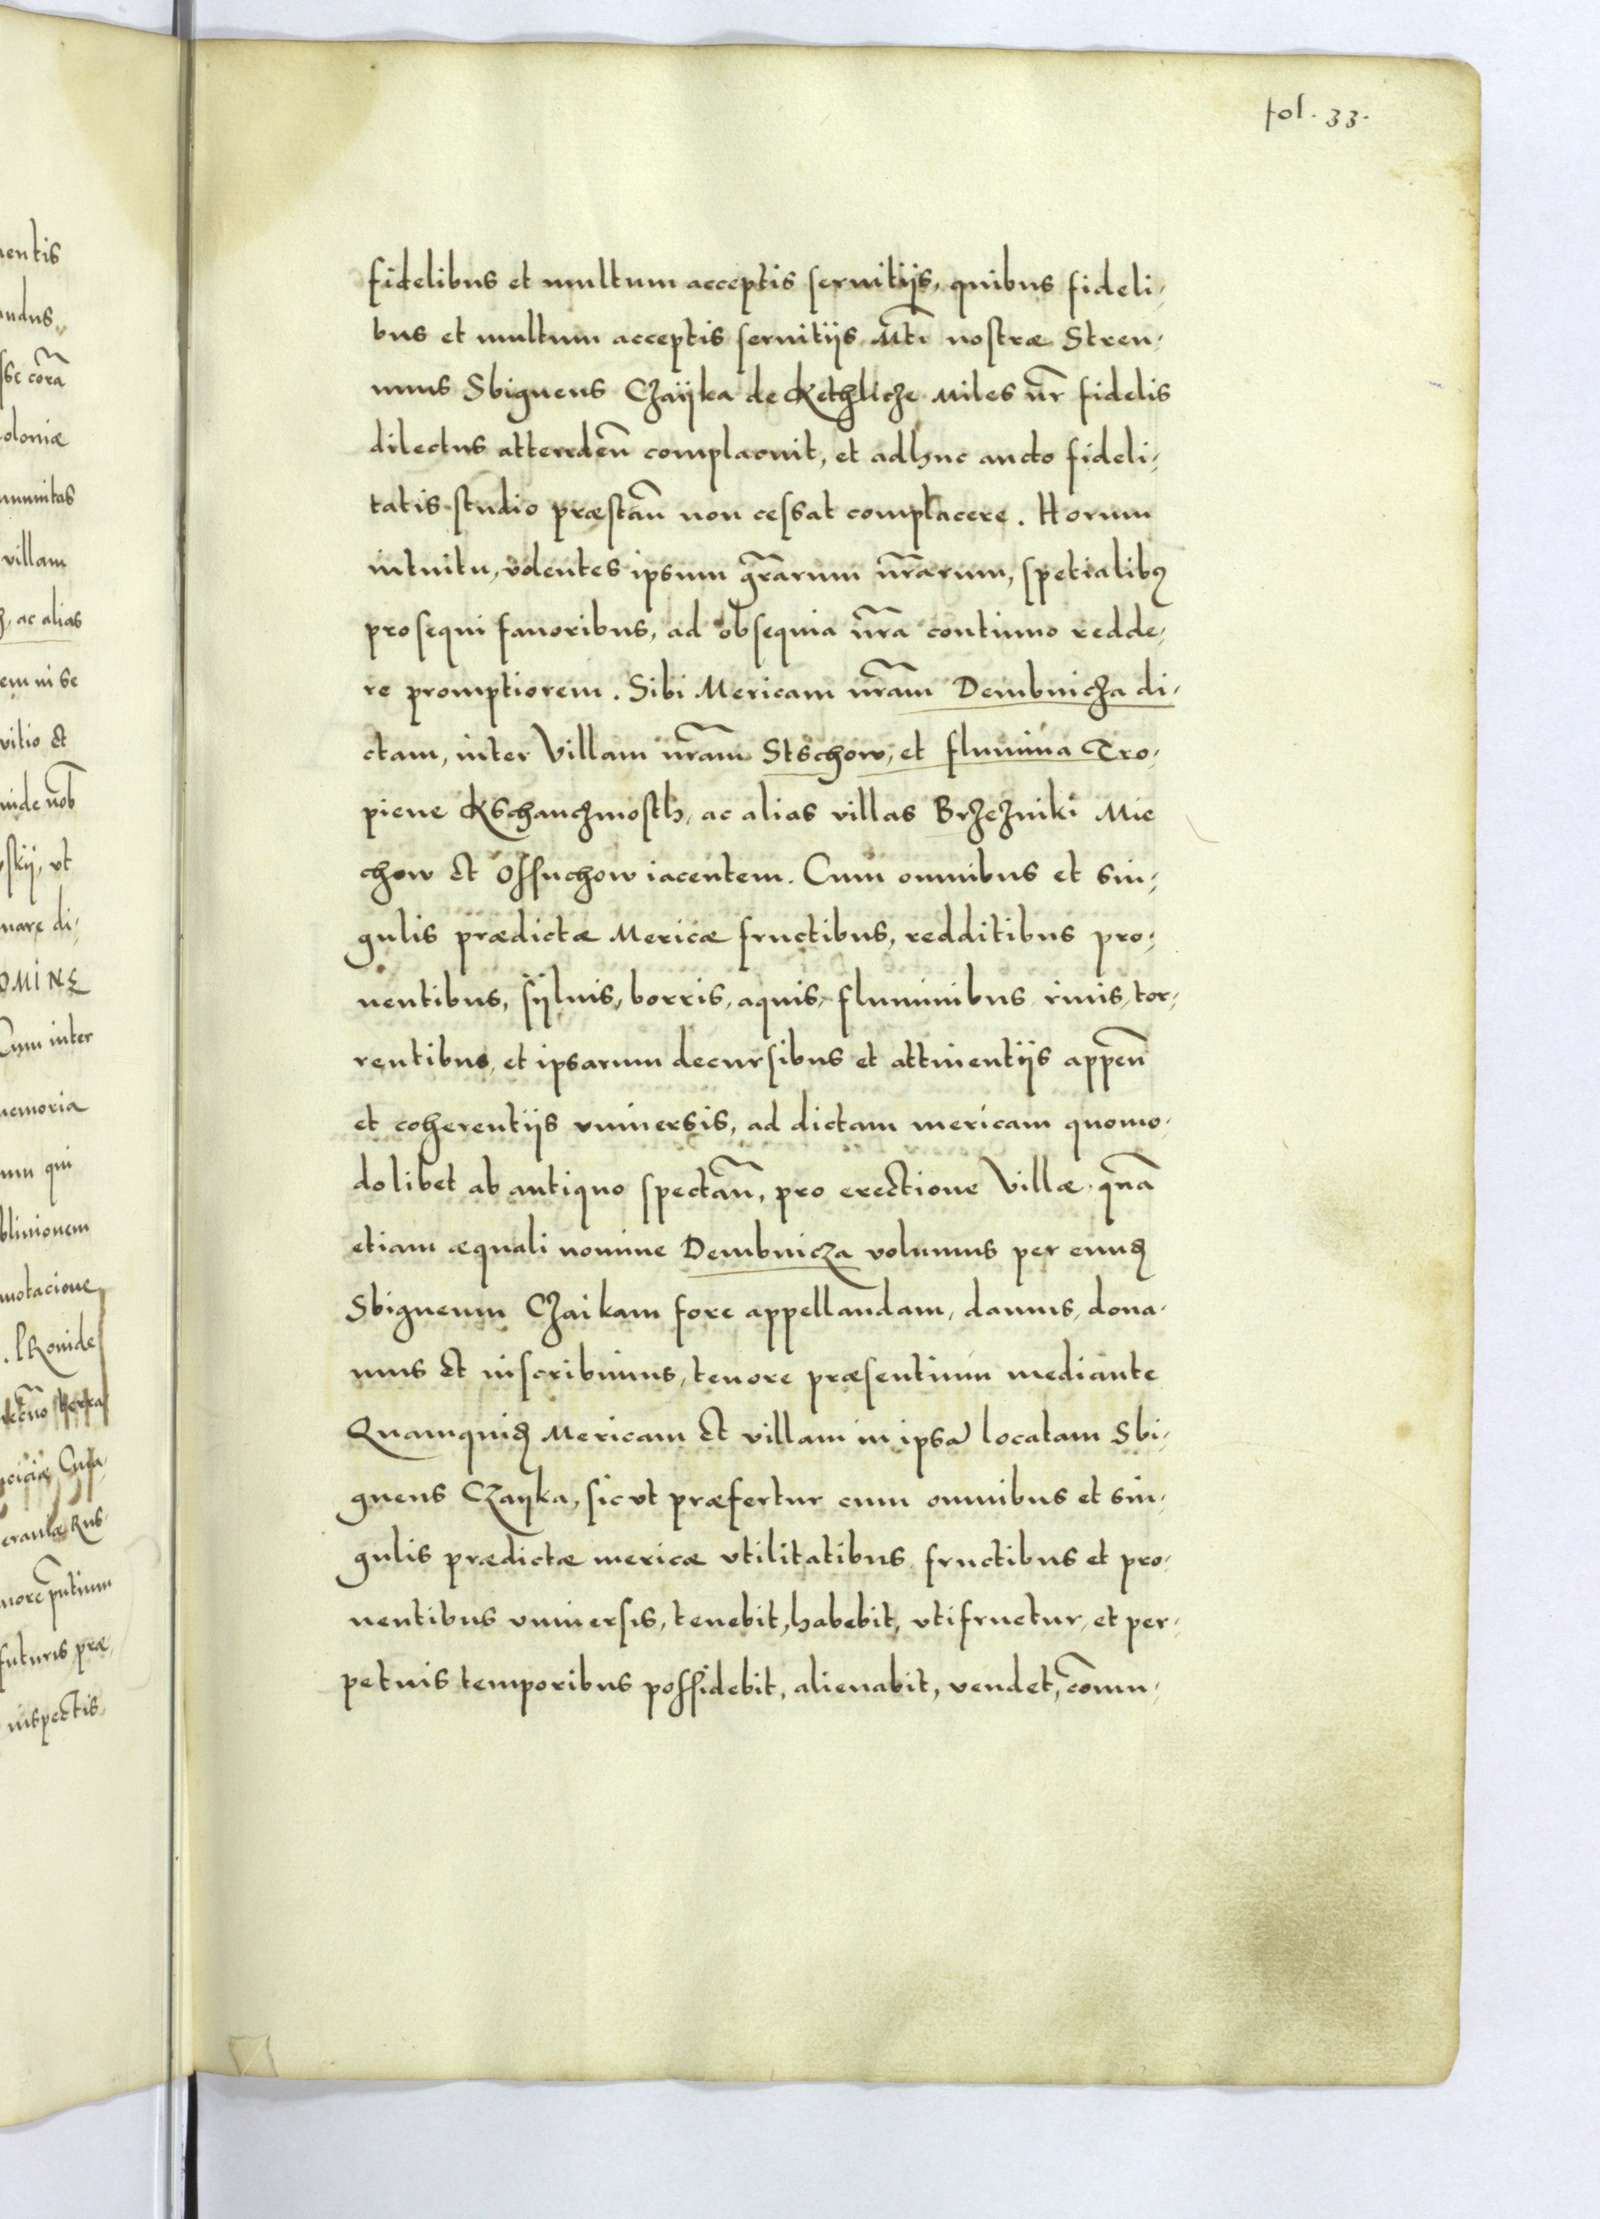 fol. 33.
fidelibus et multum acceptis seruitijs, quibus fideli,
bus et multum acceptis seruitijs Mti nostræ Stren,
nuus Sbigneus Czaijka de Kethlicze Miles nr fidelis
dilectus attenden complacuit, et adhuc aucto fideli,
tatis studio præstan non cessat complacere. Horum
intuitu, volentes ipsum grarum nrarum, spetialibꝰ
prosequi fauoribus, ad obsequia nra continuo redde,
re promptiorem. Sibi Mericam nram Dembnicza di,
ctam, inter Villam nram Stschow, et flumina Tro,
piene Kschanczmosth, ac alias villas Brzezniki Mie
chow et Ossuchow iacentem. Cum omnibus et sin,
gulis prædictæ Mericæ fructibus, redditibus pro,
uentibus, sijluis, borris, aquis, fluminibus riuis, tor,
rentibus, et ipsarum decursibus et attinentijs appen
et coherentijs vniuersis, ad dictam mericam quomo,
dolibet ab antiquo spectan, pro erectione Villæ, qua
etiam æquali nomine Dembnicza volumus per eundꝫ
Sbigneum Czaikam fore appellandam, damus, dona,
mus et inscribimus, tenore præsentium mediante
Quamquidꝫ Mericam et villam in ipsa locatam Sbi,
gneus Czayka, sicut præfertur cum omnibus et sin,
gulis prædictæ mericæ vtilitatibus fructibus et pro,
uentibus vniuersis, tenebit, habebit, vtifruetur, et per,
petuis temporibus possidebit, alienabit, vendet, comu,